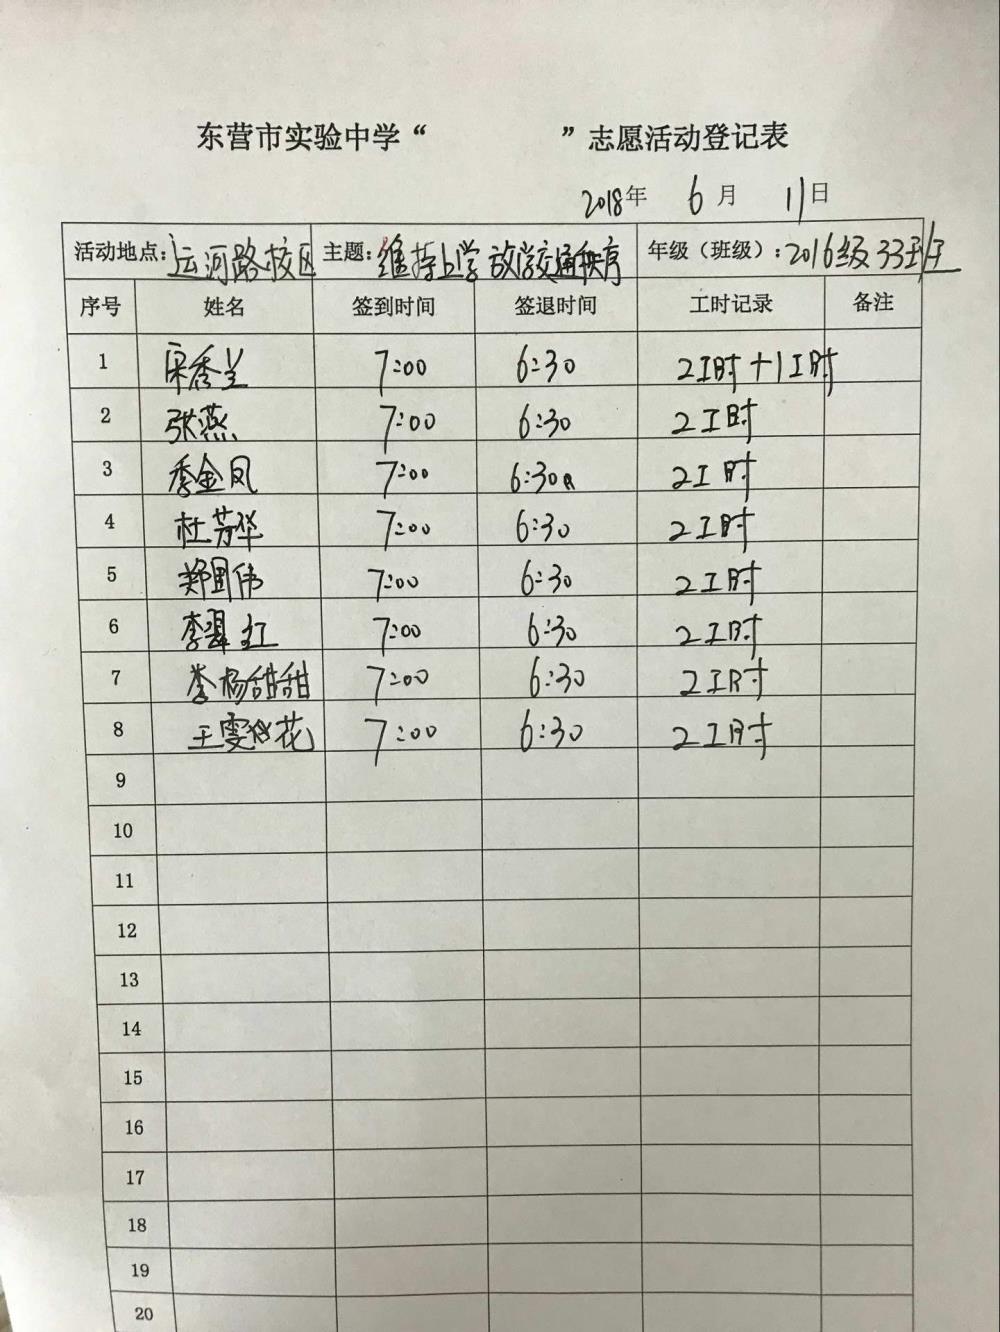 东营市实验中学“ ”志愿活动登记表
2018年 6月 11日
活动地点:运河路校区 主题:维持上学放学交通秩序 年级（班级）:2016级33班
序号 姓名 签到时间 签退时间 工时记录 备注
1 宋秀兰 7:00 6:30 2工时+1工时
2 张燕 7:00 6:30 2工时
3 季金凤 7:00 6:30 2工时
4 杜芳华 7:00 6:30 2工时
5 郑国伟 7:00 6:30 2工时
6 李翠红 7:00 6:30 2工时
7 李杨甜甜 7:00 6:30 2工时
8 王雯 花 7:00 6:30 2工时
9
10
11
12
13
14
15
16
17
18
19
20